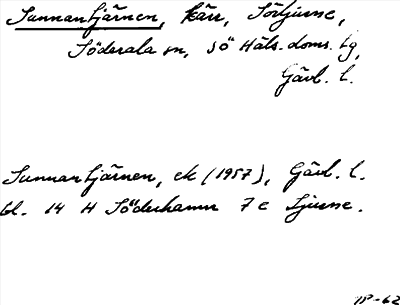 Sunnantjärnen, kärr, Sörljusne,
Söderala sn, SÖ Häls. doms. tg,
Gävl. l.
Sunnantjärnen, ek (1957), Gävl. l.
bl. 14 H Söderhamn 7 e Ljusne.